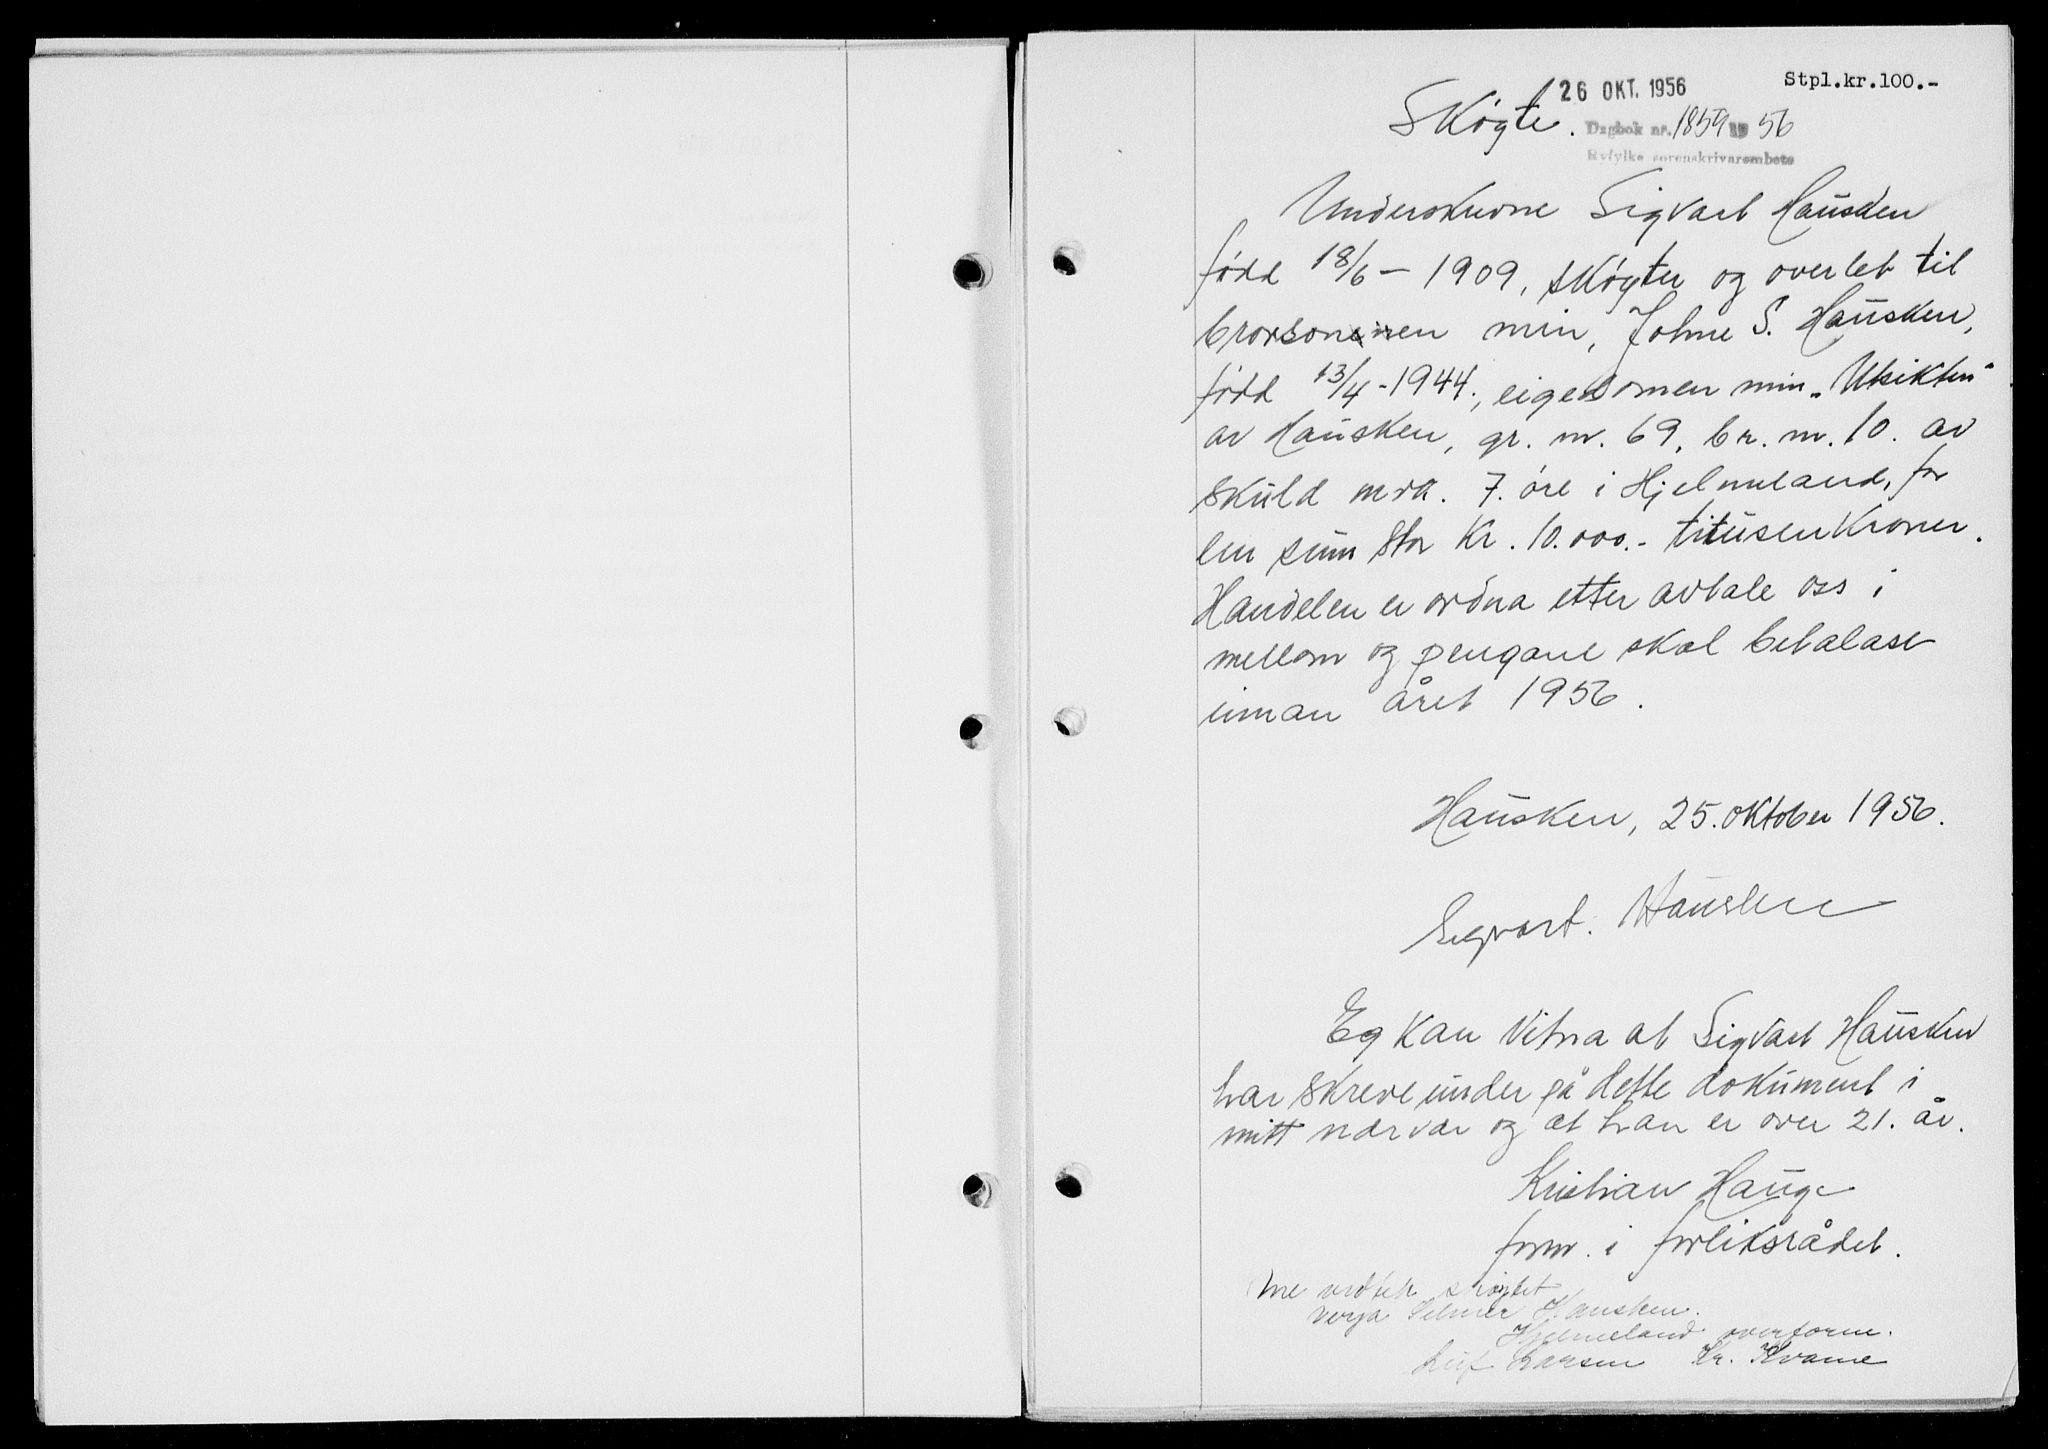 Stpl.kr.100.-
26 OKT. 1956
Skøyte. Dagbok nr. 1859 19 56
Ryfylke sorenskrivarembete
Underskrivne Sigvart Hausken
fødd 18/6 - 1909, skøyter og overlet til
brorsonen min, Johne S. Hausken,
fødd 13/4 - 1944., eigedomen min „Utsikten"
av Hausken, gr. nr. 69, br. nr. 10. av
skuld mrk. 7. øre i Hjelmeland, for
ein sum stor Kr. 10.000.- titusenkroner.
Handelen er ordna etter avtale oss i
mellom og pengane skal betalast
innan året 1956.
Hausken, 25. oktober 1956.
Sigvart. Hausken
Eg kan vitna at Sigvart Hausken
har skreve under på dette dokument i
mitt nærvær og at han er over 21. år.
Kristian Hauge
form. i forliksrådet.
Me vedtek skøytet
verja Selmer Hausken.
Hjelmeland overform.
Leif Larsen Kr. Kvame